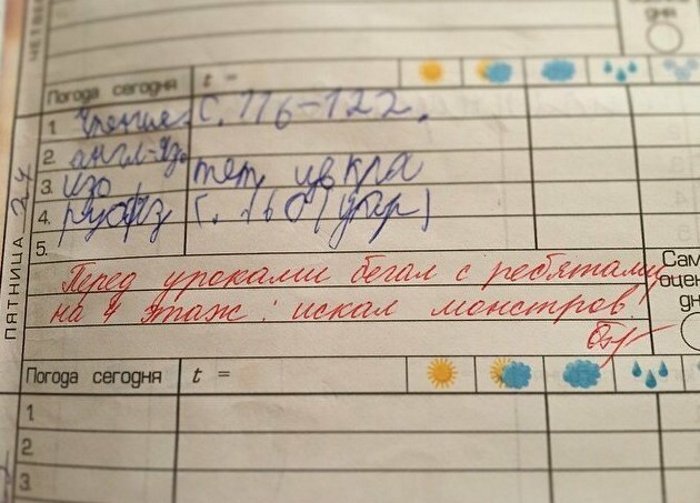 ЧЕТВЕ
дня
Погода сегодня t =
ПЯТНИЦА 24
1. чтение с. 116-122.
2. англ-яз.
3. изо тет, цв кра
4. рус яз с. 160 (упр)
5.
Перед уроками бегал с ребятами
на 4 этаж: искал монстров.
Сам
оцен
дн
Погода сегодня t =
1
2
3.